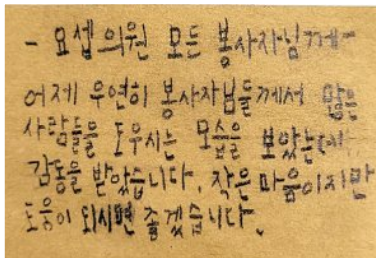 - 요셉의원 모든 봉사자님께-
어제 우연히 봉사자님들께서 많은
사람들을 도우시는 모습을 보았는데
감동을 받았습니다. 작은 마음이지만
도움이 되시면 좋겠습니다.